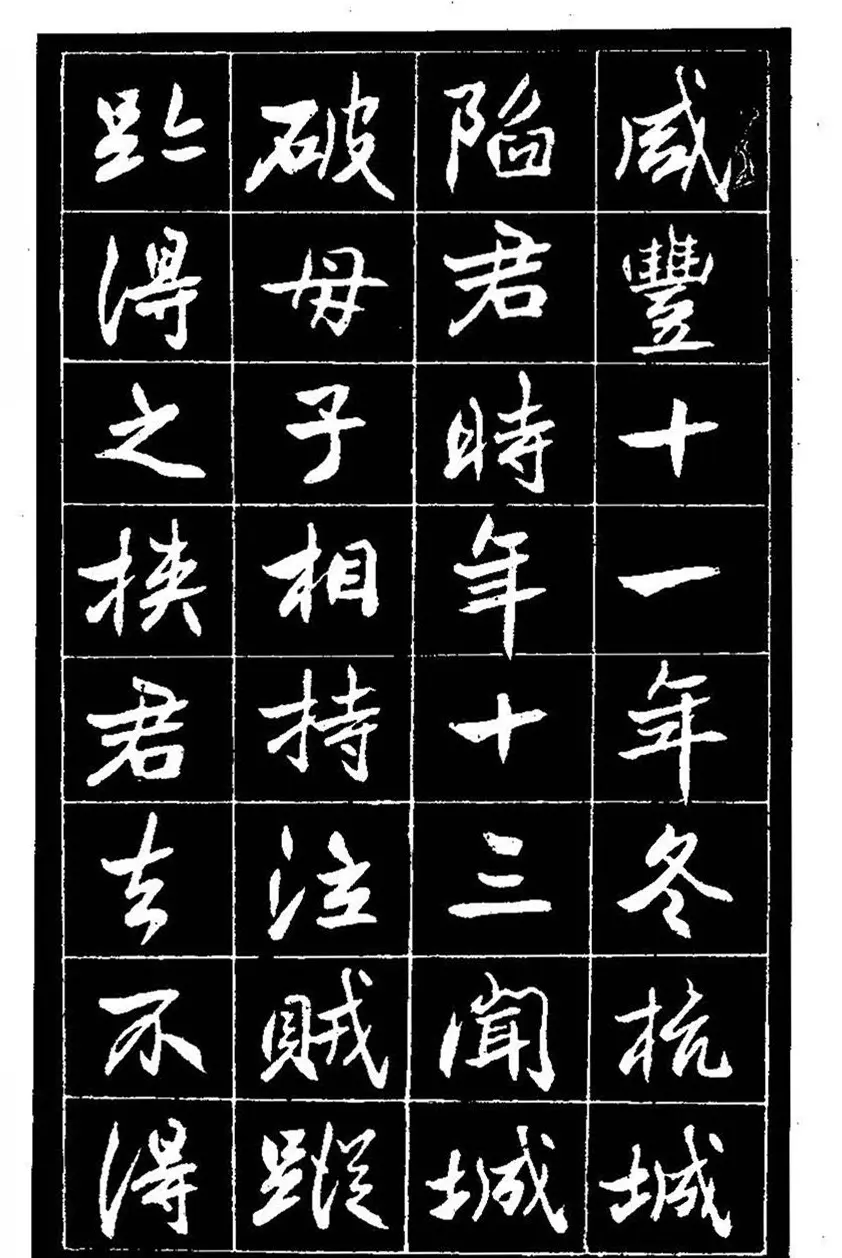 咸豐十一年冬杭城
陷君時年十三聞城
破母子相持泣賊蹤
跡得之挾君去不得